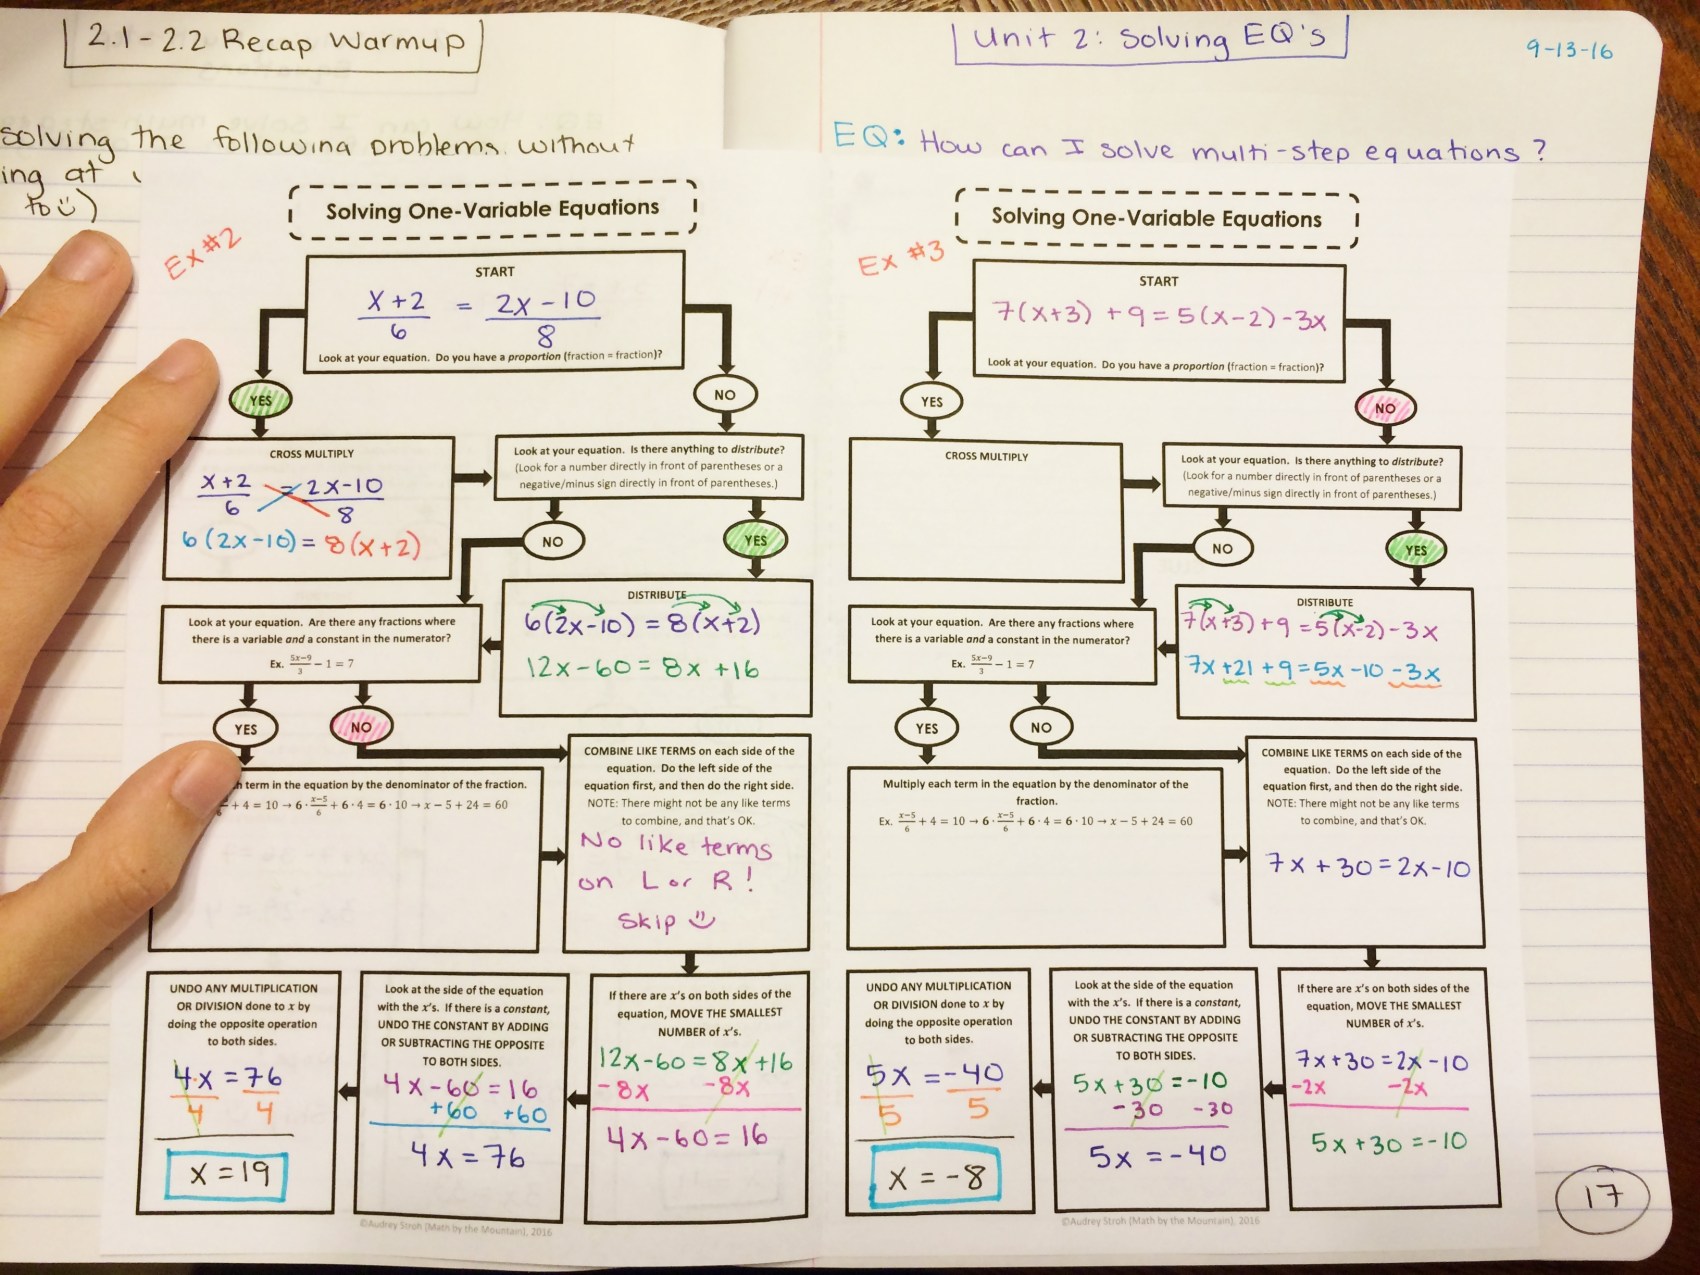 2.1-2.2 Recap Warmup
solving the following problems without
ing at
to☺)
Solving One-Variable Equations
Ex #2
START
x+2/6 = 2x-10/8
Look at your equation. Do you have a proportion (fraction = fraction)?
YES
NO
CROSS MULTIPLY
x+2/6 = 2x-10/8
6(2x-10) = 8(x+2)
Look at your equation. Is there anything to distribute?
(Look for a number directly in front of parentheses or a
negative/minus sign directly in front of parentheses.)
NO
YES
DISTRIBUTE
6(2x-10) = 8(x+2)
12x-60 = 8x+16
Look at your equation. Are there any fractions where
there is a variable and a constant in the numerator?
Ex. 5x-9/3 - 1 = 7
YES
NO
term in the equation by the denominator of the fraction.
+ 4 = 10 → 6 · x-5/6 + 6 · 4 = 6 · 10 → x - 5 + 24 = 60
COMBINE LIKE TERMS on each side of the
equation. Do the left side of the
equation first, and then do the right side.
NOTE: There might not be any like terms
to combine, and that's OK.
No like terms
on L or R!
Skip ☺
If there are x's on both sides of the
equation, MOVE THE SMALLEST
NUMBER of x's.
12x-60 = 8x+16
-8x -8x
4x-60 = 16
Look at the side of the equation
with the x's. If there is a constant,
UNDO THE CONSTANT BY ADDING
OR SUBTRACTING THE OPPOSITE
TO BOTH SIDES.
4x-60 = 16
+60 +60
4x = 76
UNDO ANY MULTIPLICATION
OR DIVISION done to x by
doing the opposite operation
to both sides.
4·x = 76
4 4
x = 19
©Audrey Stroh (Math by the Mountain), 2016
Unit 2: Solving EQ's
9-13-16
EQ: How can I solve multi-step equations?
Solving One-Variable Equations
Ex #3
START
7(x+3) + 9 = 5(x-2) - 3x
Look at your equation. Do you have a proportion (fraction = fraction)?
YES
NO
CROSS MULTIPLY
Look at your equation. Is there anything to distribute?
(Look for a number directly in front of parentheses or a
negative/minus sign directly in front of parentheses.)
NO
YES
DISTRIBUTE
7(x+3) + 9 = 5(x-2) - 3x
7x + 21 + 9 = 5x - 10 - 3x
Look at your equation. Are there any fractions where
there is a variable and a constant in the numerator?
Ex. 5x-9/3 - 1 = 7
YES
NO
Multiply each term in the equation by the denominator of the
fraction.
Ex. x-5/6 + 4 = 10 → 6 · x-5/6 + 6 · 4 = 6 · 10 → x - 5 + 24 = 60
COMBINE LIKE TERMS on each side of the
equation. Do the left side of the
equation first, and then do the right side.
NOTE: There might not be any like terms
to combine, and that's OK.
7x + 30 = 2x - 10
If there are x's on both sides of the
equation, MOVE THE SMALLEST
NUMBER of x's.
7x+30 = 2x-10
-2x -2x
5x+30 = -10
Look at the side of the equation
with the x's. If there is a constant,
UNDO THE CONSTANT BY ADDING
OR SUBTRACTING THE OPPOSITE
TO BOTH SIDES.
5x+30 = -10
-30 -30
5x = -40
UNDO ANY MULTIPLICATION
OR DIVISION done to x by
doing the opposite operation
to both sides.
5x = -40
5 5
x = -8
©Audrey Stroh (Math by the Mountain), 2016
17